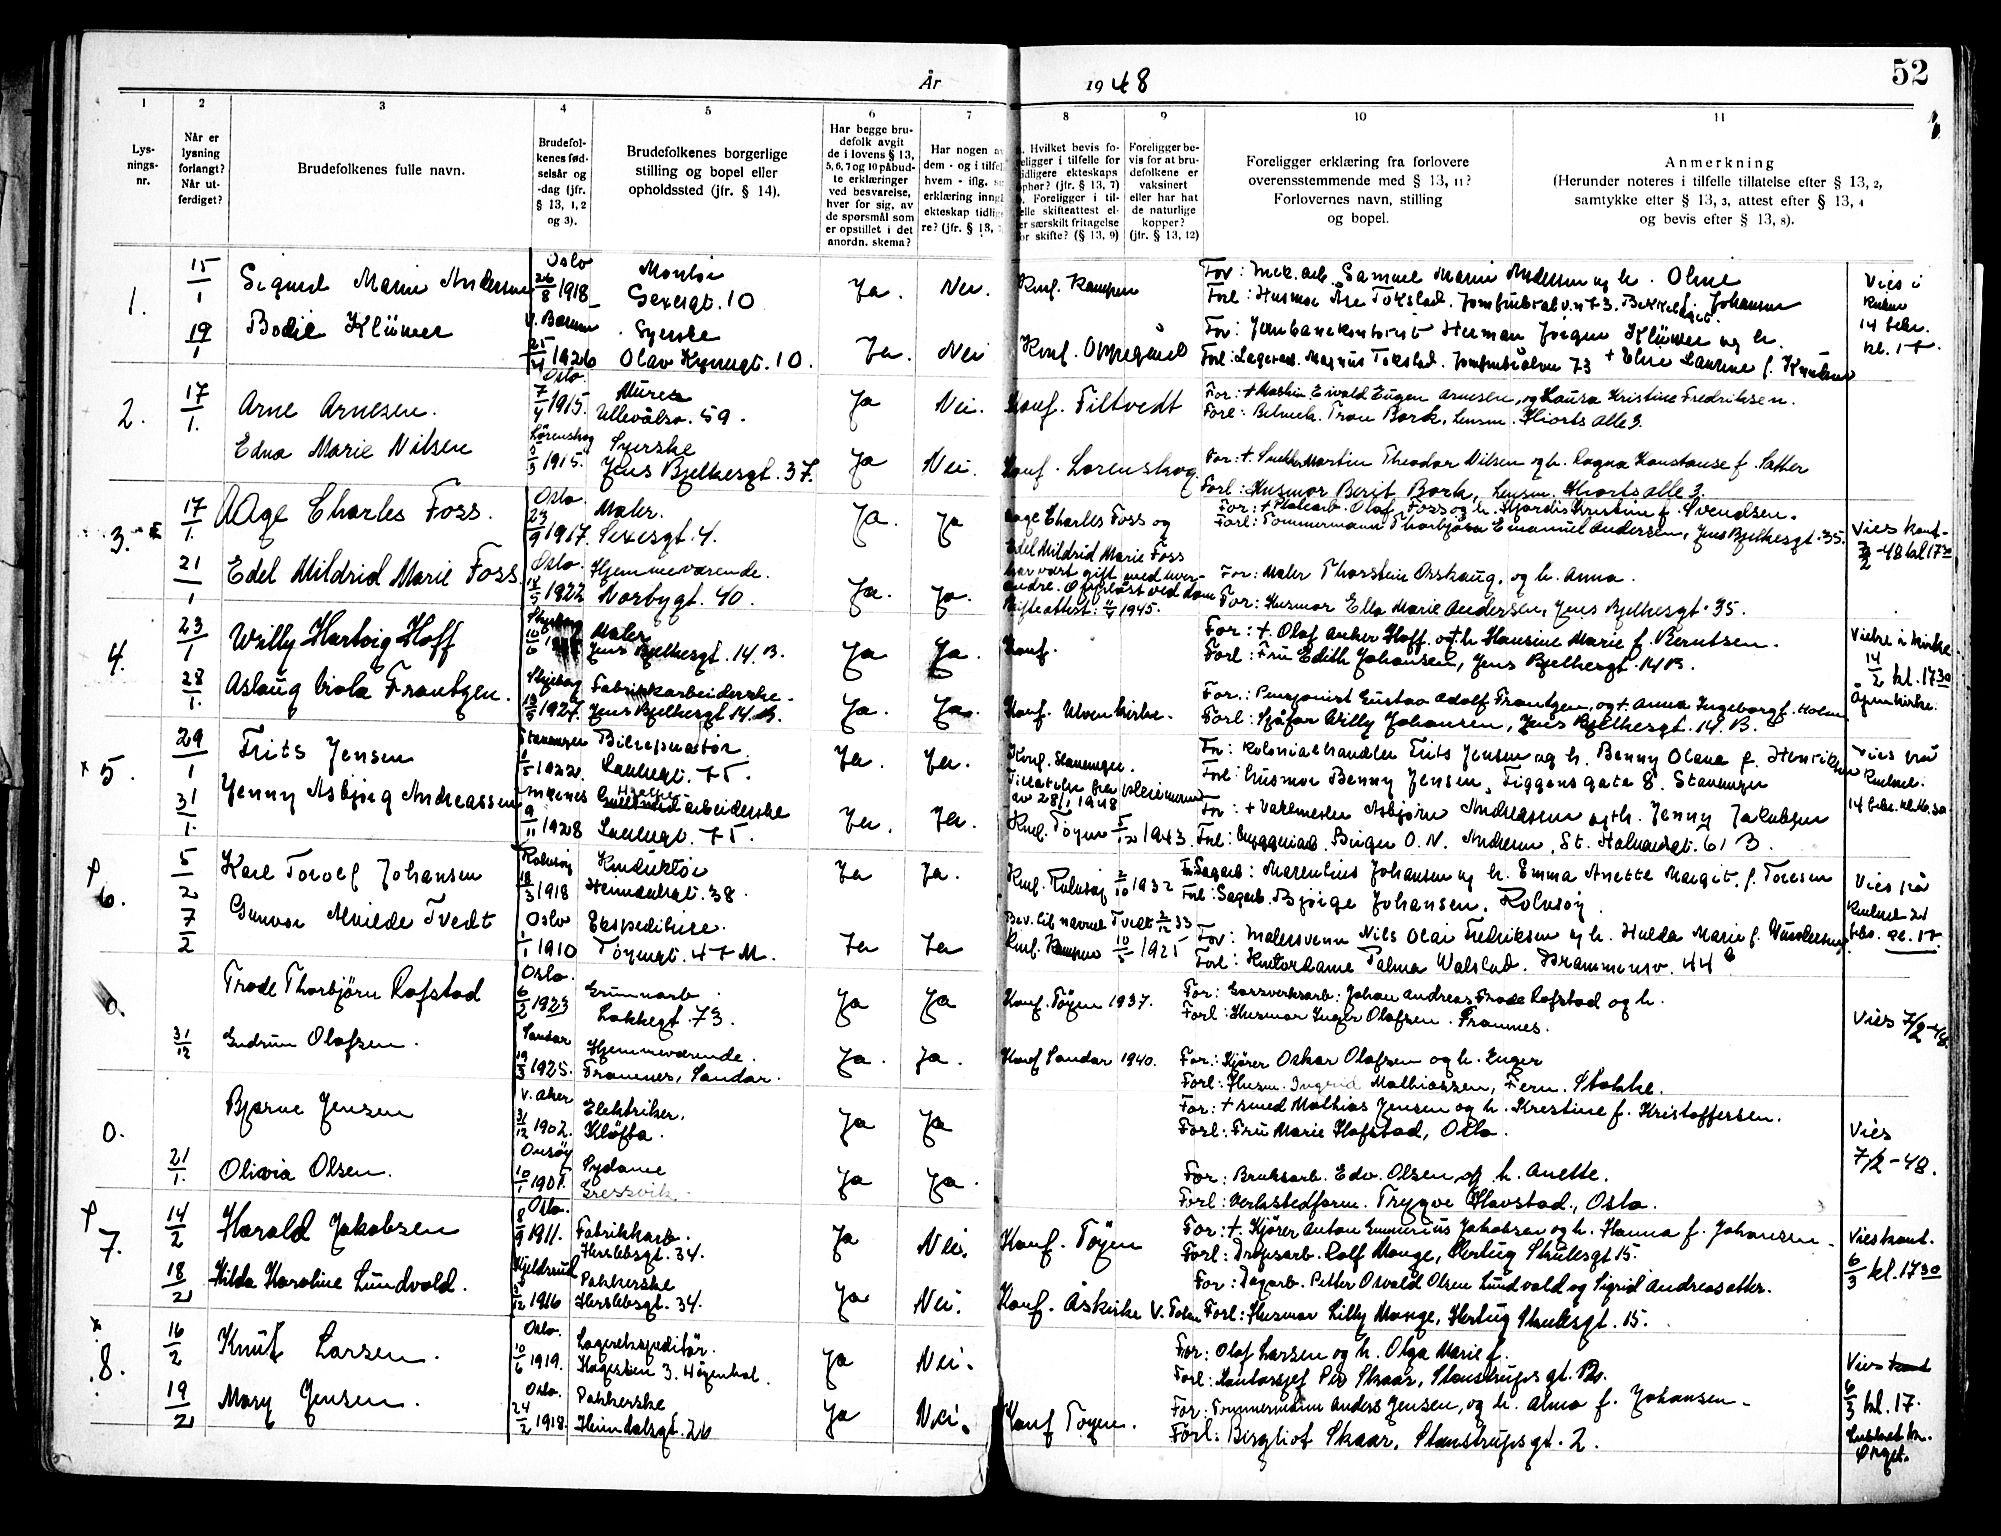 År 1948
52
1 2 3 4 5 6 7 8 9 10 11
Lys-
nings-
nr.
Når er
lysning
forlangt?
Når ut-
ferdiget?
Brudefolkenes fulle navn.
Brudefol-
kenes fød-
selsår og
-dag (jfr.
§ 13, 1, 2
og 3).
Brudefolkenes borgerlige
stilling og bopel eller
opholdssted (jfr. § 14).
Har begge bru-
defolk avgit
de i lovens § 13,
5, 6, 7 og 10 påbud-
te erklæringer
ved besvarelse,
hver for sig, av
de spørsmål som
er opstillet i det
anordn. skema?
Har nogen av
dem - og i tilfelle
hvem - iflg.
erklæring inngått
ekteskap tidlige-
re? (jfr. § 13,
Hvilket bevis fo-
religger i tilfelle for
tidligere ekteskaps
ophør? (jfr. § 13, 7)
Foreligger i til-
felle skifteattest el-
ler særskilt fritagelse
for skifte? (§ 13, 9)
Foreligger be-
vis for at bru-
defolkene er
vaksinert
eller har hat
de naturlige
kopper?
(jfr. § 13, 12)
Foreligger erklæring fra forlovere
overensstemmende med § 13, 11?
Forlovernes navn, stilling
og bopel.
Anmerkning
(Herunder noteres i tilfelle tillatelse efter § 13, 2,
samtykke efter § 13, 3, attest efter § 13, 4
og bevis efter § 13, 8).
1. 15/1 Sigurd Marin Andersen Oslo 26/8 1918 Montør Sexesgt. 10 Ja. Nei. Konf. Kampen
For: Mek. arb. Samuel Marin Andersen og h. Oline Johansen
Forl: Husmor Åse Tokstad,
Vies i kirken 14 febr. kl. 17.
19/1 Bodil Klüwer V. Bærum 25/ 1926 Syerske Olav Kyrresgt. 10. Ja. Nei Konf. Oppegård
For: Jernbanekontorist Herman Jørgen Klüwer og h.
Forl: Lagerarb. Magnus Tokstad. 73 + Else Laurine f. Knudsen
2. 17/1. Arne Arnesen. Oslo. 7/4 1915. Murer Ullevålsv. 59. Ja Nei. Konf. Filtvedt
For: + Martin Eivald Eugen Arnesen, og Laura Kristine Fredriksen.
Forl: Bilmek. Tron Bark, Lensm. Hiorts alle 3.
Edna Marie Nilsen Lørenskog 5/5 1915. Syerske Jens Bjelkesgt. 37. Ja Nei. Konf. Lørenskog
For: + Snekker Martin Theodor Nilsen og h. Ragna Konstanse f. Sætter
Forl: Husmor Berit Bark, Lensm. Hiorts alle 3.
3. 17/1. Aage Charles Foss. Oslo. 23/9 1917. Maler. Sexesgt. 4. Ja. Ja
Aage Charles Foss og
Edel Mildrid Marie Foss
har vært gift med hver-
andre. Oppløst ved dom
Skifteattest: 1945.
For: + Platearb. Olaf Foss og h. Hjordis Kristine f. Svendsen.
Forl: Tømmermann Thorbjørn Emanuel Andersen, Jens Bjelkesgt. 35.
Vies kont- 7/2-48 kl 17 30
21/1 Edel Mildrid Marie Foss Oslo. 18/5 1922 Hjemmeværende. Norbygt. 40. Ja. Ja.
For: Maler Thorstein Osskaug, og h. Anna.
For: Husmor Ella Marie Andersen, Jens Bjelkesgt. 35.
4. 23/1 Willy Hartvig Hoff Maler Jens Bjelkesgt. 14. B. Ja Ja. Konf.
For: +. Olaf Anker Hoff. og + h. Hansine Marie f. Berntsen.
Forl: Fru Edith Johansen, Jens Bjelkesgt. 14 B.
Vielse i kirke 14/2 kl. 17 30 Åpen kirke.
28/1. Aslaug Viola Frantzen. Skjeberg 1927. Fabrikkarbeiderske. Jens Bjelkesgt 14 B. Ja. Ja. Konf. Ulven kirke.
For: Pensjonist Gustav Adolf Frantzen, og + Anna Ingeborg f. Holm
Forl: Sjåfør Willy Johansen, Jens Bjelkesgt. 14. B.
x 5. 29/1 Frits Jensen Stavanger 1/5 1922. Bilreparatør. Lakkegt. 75. Ja. Ja. Konf. Stavanger.
Tillatelse fra
av 28/1 1948
For: Kolonialhandler Frits Jensen og h. Benny Olava f. Henriksen
Forl: husmor Benny Jensen, Figgensgate 8. Stavanger
Vies på kontoret 14 febr. kl. 16.30
31/1. Jenny Asbjørg Andreassen 9/11 1928 arbeiderske Lakkegt. 75. Ja. Ja. Konf. Tøyen 5/12 1943.
For: + Vaktmester Asbjørn Andreassen og h. Jenny Jakobsen
Forl: byggmarb. Birger O. N. Andersen, St. Halvardsgt. 61 B.
6. 5/2 Karl Torolf Johansen Rolvsøy 18/3 1918 Konduktør Heimdalsgt. 38. Ja Ja. Konf. Rolvsøy 2/10 1932
For: Sagarb. Marentius Johansen og h. Emma Anette Margit. f. Toresen
Forl: Sagarb. Bjørge Johansen, Rolvsøy
Vies på kontoret 21 febr. kl. 17.
7/2 Gunvor Alvilde Tvedt Oslo 1/1 1910 Ekspeditrise. Tøyengt. 47 M. Ja Ja
Bev. til navnet Tvedt 33
Konf. Kampen 10/5 1925
For: Malersvenn Nils Olai Fredriksen og h. Hulda Marie f. Gundersen
Forl: Kontordame Palma Walstad. Drammensv. 44 b
0. Trade Thorbjørn Rafstad Oslo. 6/2 1923 Grunnarb. Lakkegt. 73. Ja Ja Konf. Tøyen 1937.
For: Gassverksarb: Johan Andreas Trade Rafstad og h.
Forl: Husmor Inger Olafsen. Framnes.
Vies 7/2-48
31/12 Gudrun Olafsen. Sandar 19/3 1925. Hjemmeværende. Framnes, Sandar. Ja. Ja. Konf Sandar 1940.
For: Kjører Oskar Olafsen og h. Inger
Forl: Husm. Ingrid Mathiassen, Fern. Stokke.
0. Bjarne Jensen V. Aker 31/12 1902. Elektriker. Kløfta. Ja Ja
For: + smed Mathias Jensen og h. Kristine f. Kristoffersen.
Forl: Fru Marie Hafstad, Oslo.
Vies 7/2-48.
21/1. Olivia Olsen. Onsøy 10/1 1901. Sydame Gressvik. Ja Ja.
For: Bruksarb. Edv. Olsen og h. Anette.
Forl: Verkstedform. Trygve Havstad, Oslo.
7. 14/2 Harald Jakobsen Oslo. 8/9 1911. Fabrikkarb. Herslebsgt. 34. Ja Nei. Konf. Tøyen
For: +. Kjører Anton Emmerius Jakobsen og h. Hanna f. Johansen.
Forl: Drosjearb. Rolf Mange, Hertug Skulesgt 15.
Vies kont. 6/3 kl. 17 30
18/2 Hilda Karoline Lundvald. Kjeldsund 1916 Pakkerske Herslebsgt. 34. Ja Nei. Konf. Åskirke V. Toten
For: Dagarb. Petter Osvald Olsen Lundvald og Sigrid Andreasdatter.
Forl: Husmor Lilly Mange, Hertug Skulesgt. 15.
x 8. 16/2 Knut Larsen. Oslo. 10/6 1919. Lagerekspeditør. Hagestien 3. Høyenhal. Ja Nei.
For: Olaf Larsen og h. Olga Marie f.
Forl: Kontorsjef Per Skaar, Stenstrupsgt. 2b.
Vies kont 6/3 kl. 17.
19/2 Mary Jensen. Oslo. 24/2 1918. Pakkerske Heimdalsgt. 26 Ja Nei. Konf Tøyen.
For: Tømmermann Anders Jensen, og h. Alma f. Johansen.
Forl: Bergliot Skaar, Stenstrupsgt. 2.